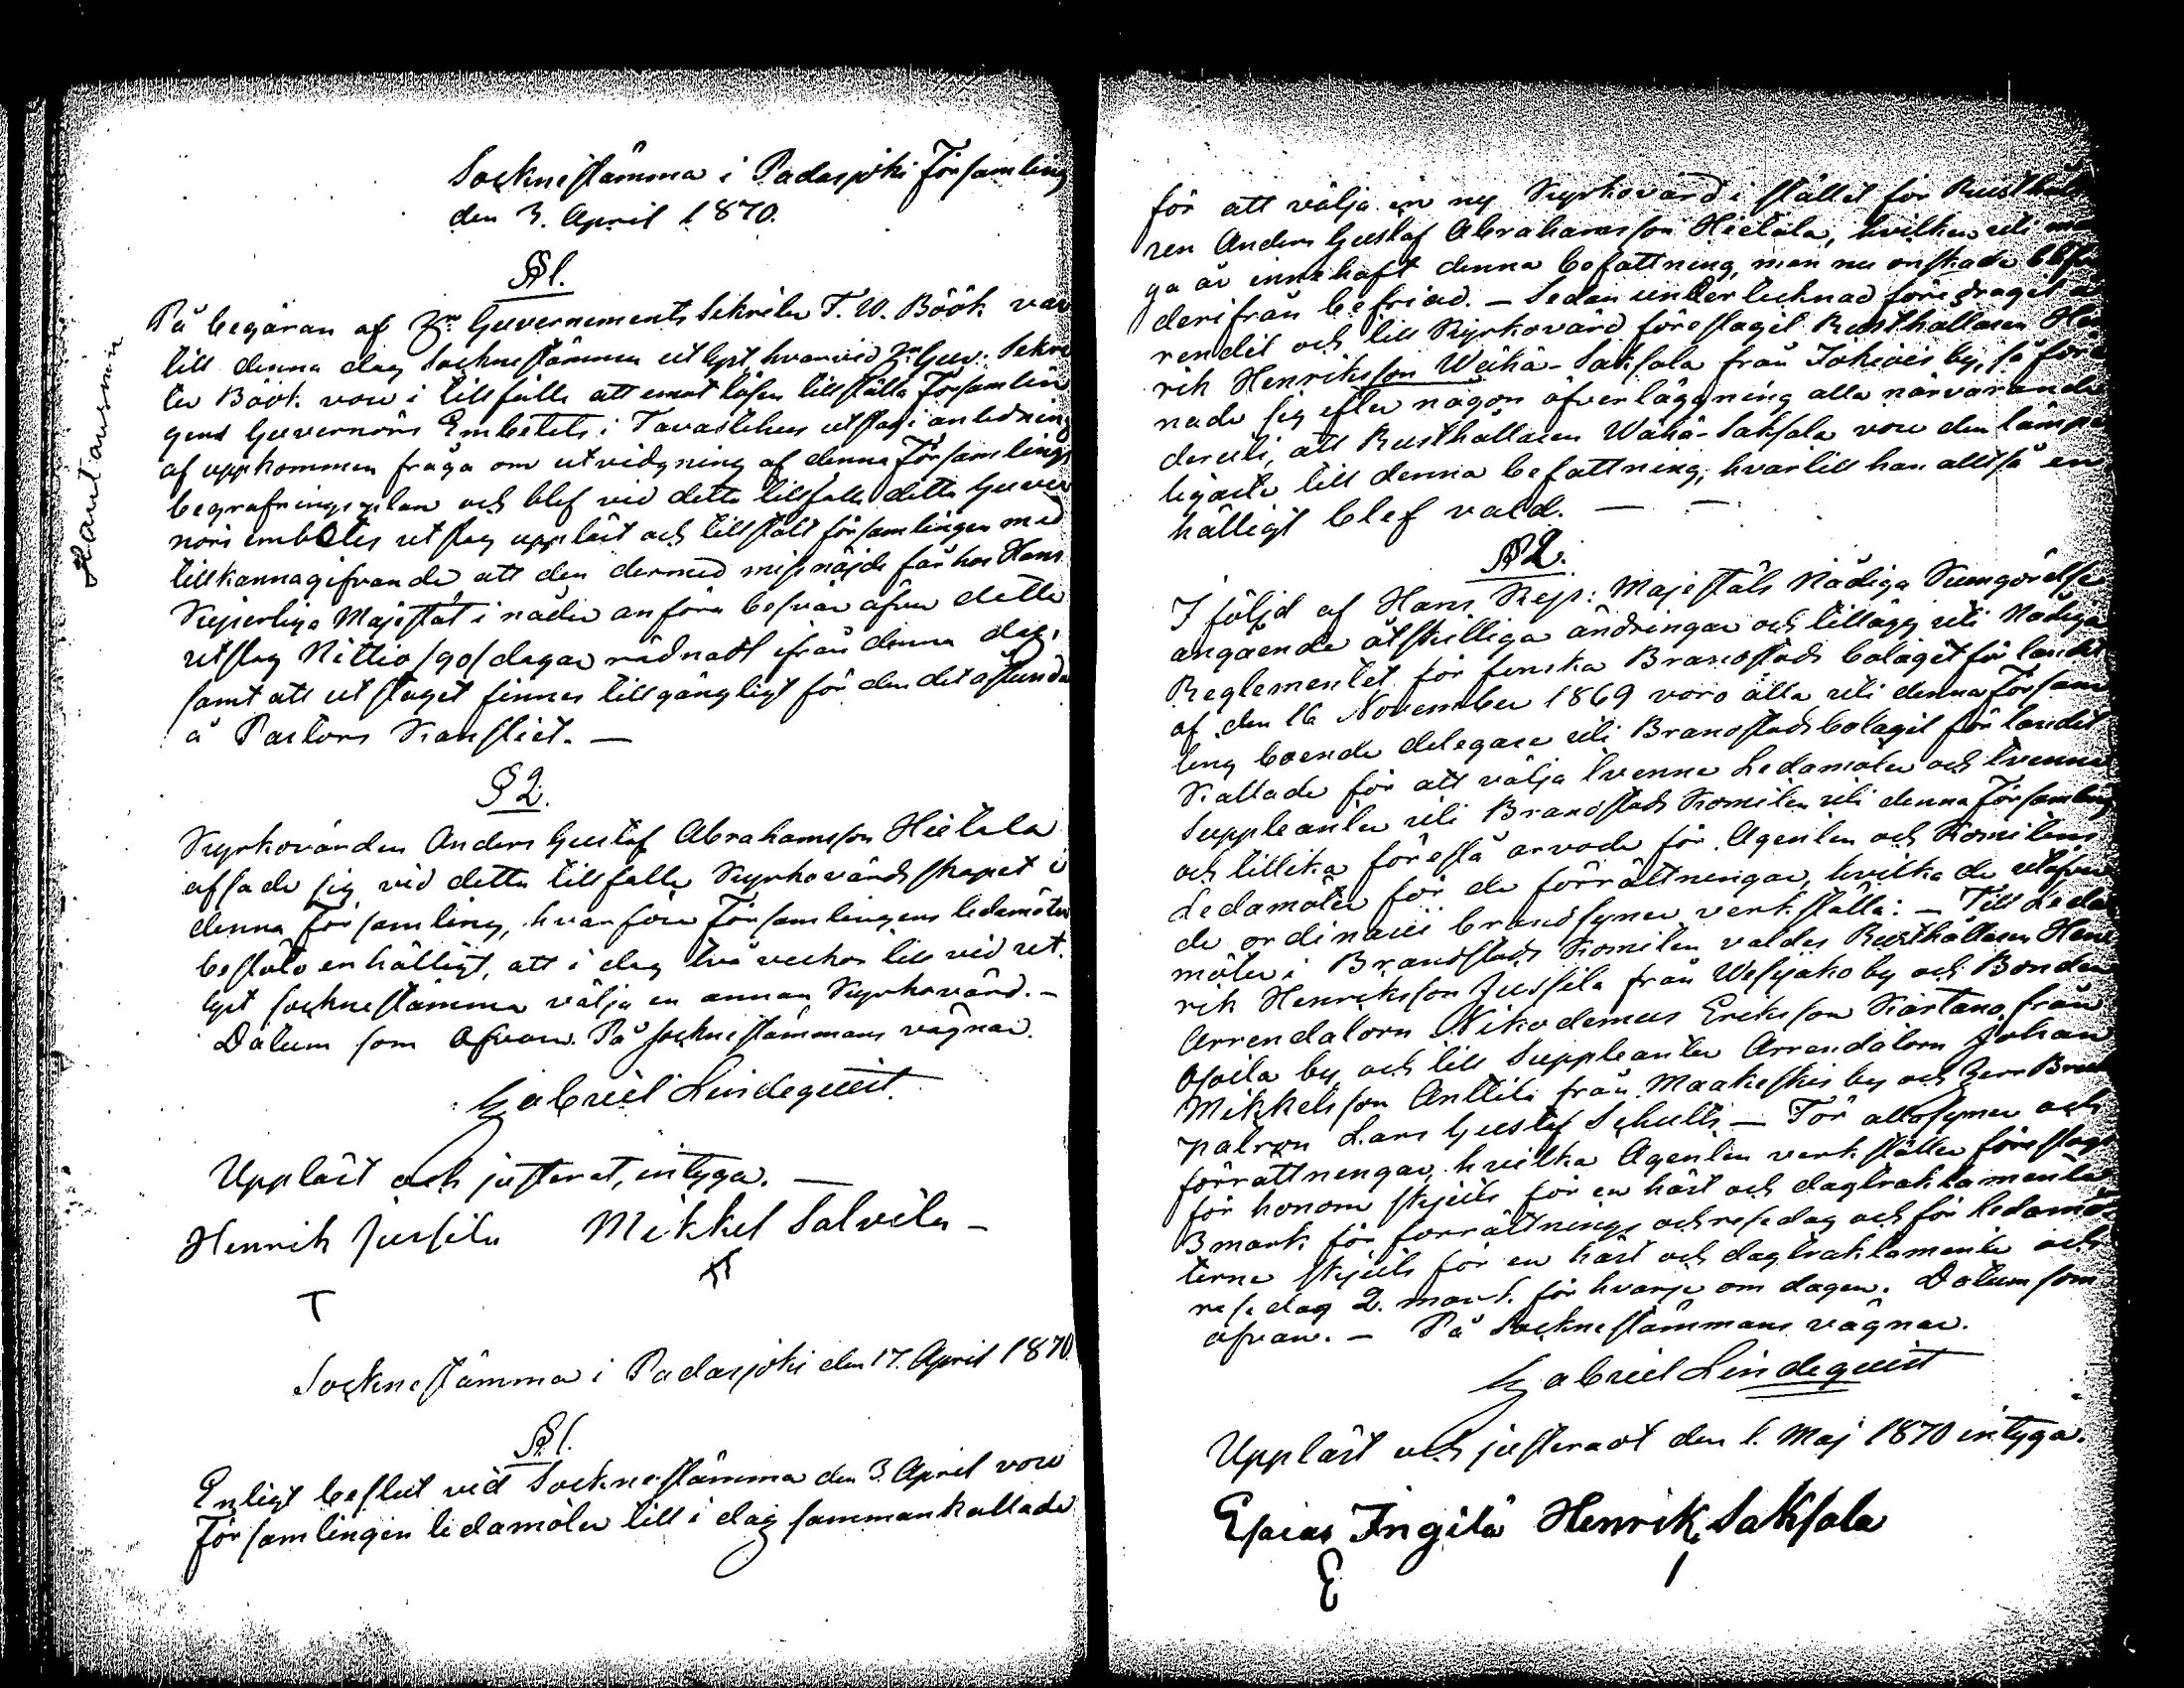 Hautausm
Sockne stämma i Padasjoki Församling
den 3. April 1870.
§ 1.
På begäran af Hr Guvernements Sekreter F. W. Böök var
till denna dag Socknestämma utlyst, hvarvid Hr Guv: Sekre
ter Böök vore i tillfälle att emot lösen tillställa Församlin
gens Guvernörs Embetets i Tavastehus utslag i anledning
af uppkommen fråga om utvidgning af denna Församlings
begrafningsplan och blef vid detta tillfälle detta Guver
nörs embetes utslag uppläst och tillstält församlingen med
tillkännagifvande, att den dermed missnöjde får hos Hans
Kejserliga Majestät i nåder anföra besvär öfver detta
utslag Nittio /90/ dagar räknadt ifrån denna dag,
samt att utslaget finnes tillgängligt för den det åstunda
å Pastors Kansliet. —
§ 2.
Kyrkovärden Anders Gustaf Abrahamsson Hietala
afsade sig vid detta tillfälle Kyrkovärdskapet i
denna församling, hvarföre Församlingens ledamöter
beslöto enhälligt, att i dag två veckor till vid ut-
lyst sockne stämma välja en annan Kyrkovärd. -
Datum som Ofvan. På sockne stämmans vägnar.
Gabriel Lindequist.
Uppläst och justerat, intyga. —
Henrik Jussila Mikkel Salvela -
T
Sockne stämma i Padasjoki den 17. April 1870.
§ 1.
Enligt beslut vid Sockne stämma den 3. April vore
Församlingen ledamöter till i dag sammankallade
för att välja en ny Kyrkovärd i stället för Rusthålla
ren Anders Gustaf Abrahamsson Hietala, hvilken uti mån
ga år innehaft denna befattning, men nu önskade blifva
derifrån befriad. — Sedan undertecknad föredragit ä
rendet och till Kyrkovärd föreslagit Rusthållaren Hen
rik Henriksson Wähä-Saksala från Jokioisby, så före
nade sig efter någon öfverläggning alla närvarande
deruti, att Rusthållaren Wähä-Saksala vore den lämpe
ligaste till denna befattning, hvartill han alltså en
hälligt blef vald. — —
§ 2.
I följd af Hans Kejs: Majestäts Nådiga Kungörelse
angående åtskilliga ändringar och tillägg uti Nådiga
Reglementet för finska Brandstods bolaget för landet
af den 16 November 1869 voro alla uti denna Försam
ling boende delegare uti Brandstodsbolaget för landet
Kallade för att välja tvenne Ledamöter och tvenne
Suppleanter uti Brandstods Komiten uti denna Församling
och tillika föreslå arvode för Agenten och Komitens
Ledamöter för de förrättningar, hvilka de utöfver
de ordinarie brandsyner verkställa: — Till Leda
möter i Brandstods Komiten valdes Rusthållaren Hen
rik Henriksson Jussila från Wesijako by och Bonden
Arrendatorn Nikodemus Eriksson Kartano från
Osoila by och till Suppleanter Arrendatorn Johan
Mikkelsson Anttila från Maakeskis by och Herr Bruks
patron Lars Gustaf Schultz — För allasyner och
förrättningar, hvilka Agenten verkställer föreslogs
för honom skjuts för en häst och dagtraktamente
3 mark för förrättnings och resedag och för ledamö
terne skjuts för en häst och dagtraktamente och
resedag 2. mark för hvarje om dagen. Datum som
ofvan. — På Sockne stämmans vägnar.
Gabriel Lindequist
Uppläst och justeradt den 1. Maj 1870 intyga.
Esaias Ingilä Henrik Saksala
E